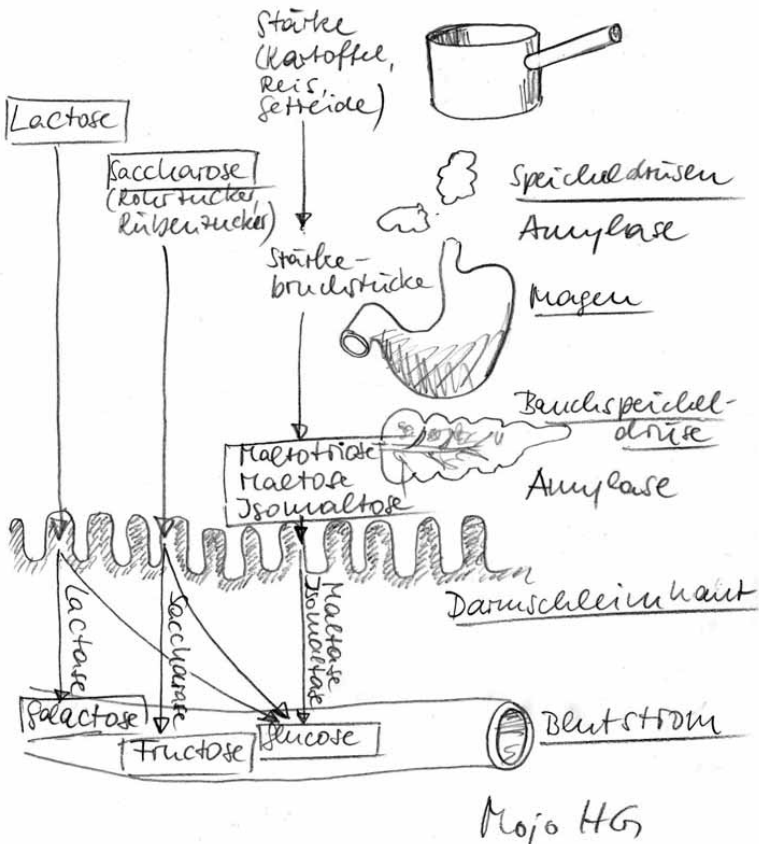 Stärke
(Kartoffel,
Reis,
Getreide)
Lactose
Saccharose
(Rohrzucker,
Rübenzucker)
Speicheldrüsen
Amylase
Stärke-
bruchstücke
Magen
Bauchspeichel-
drüse
Amylase
Maltotriose
Maltose
Isomaltose
Darmschleimhaut
Lactase
Saccharase
Maltase
Isomaltase
Galactose
Fructose
Glucose
Blutstrom
Mojo HG